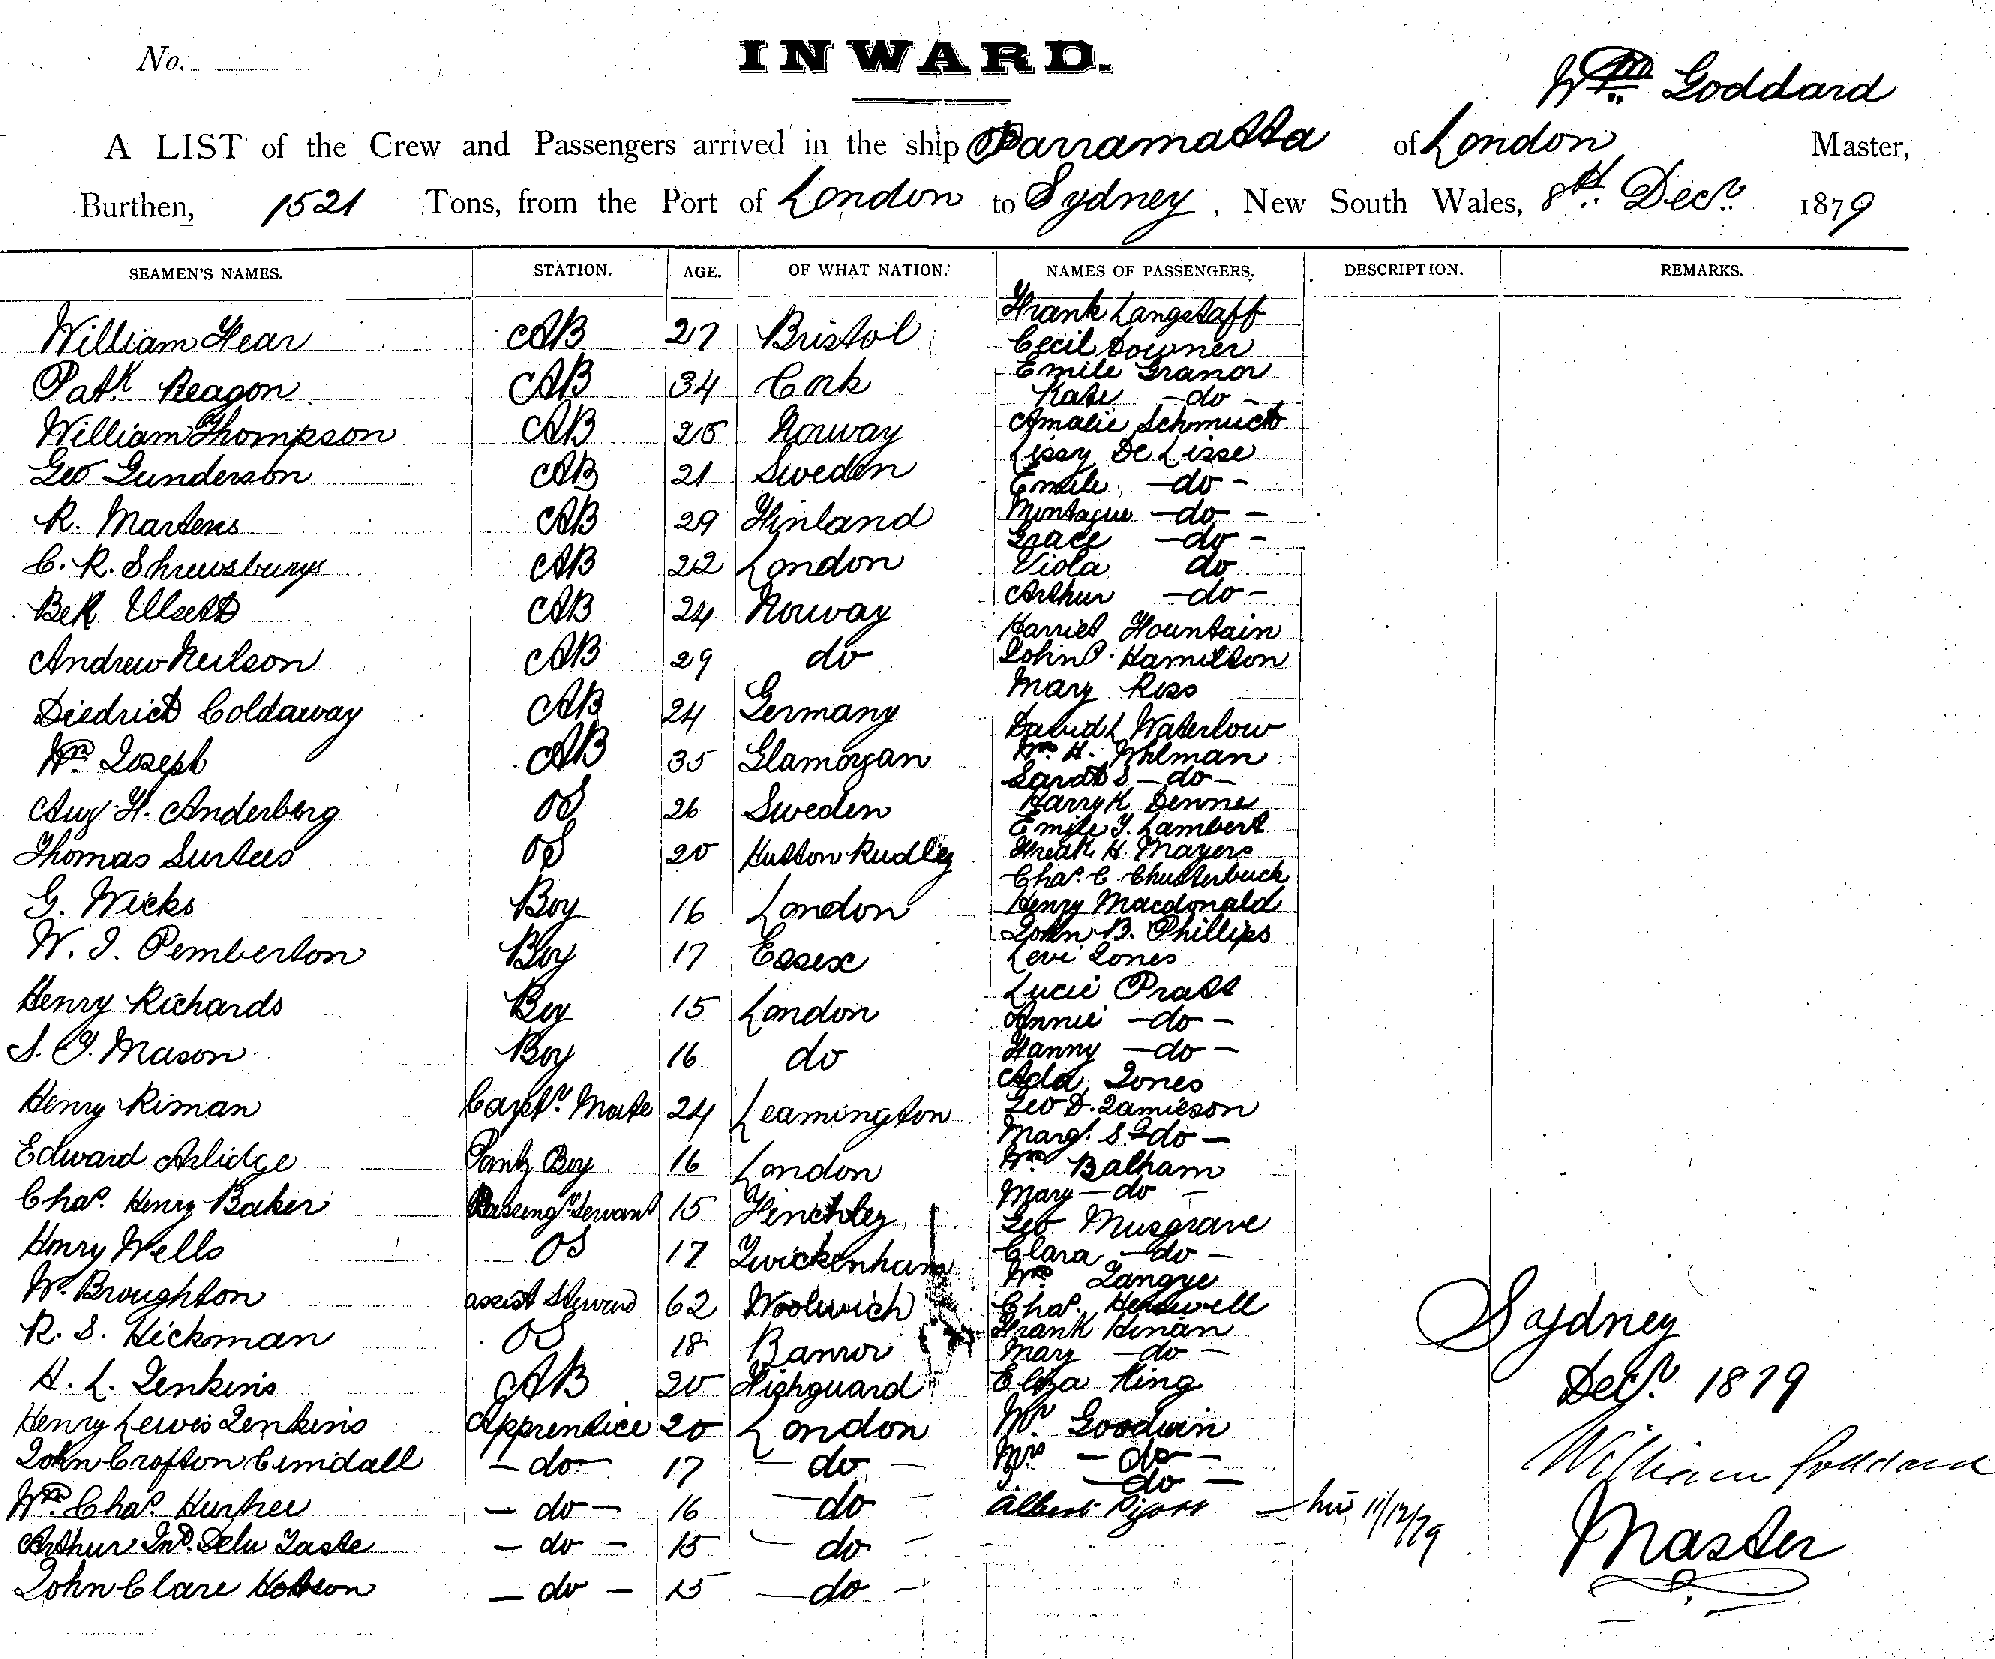 No.
INWARD.
Wm Goddard
A LIST of the Crew and Passengers arrived in the ship Parramatta of London Master,
Burthen, 1521 Tons, from the Port of London to Sydney, New South Wales, 8th Decr 1879
SEAMEN'S NAMES. STATION. AGE. OF WHAT NATION. NAMES OF PASSENGERS. DESCRIPTION. REMARKS.
Frank Langstaff
William Fear AB 27 Bristol
Cecil Downer
Emile Granor
Patk Reagon AB 34 Cork
Kate - do -
Amalie Schmuck
William Thompson AB 25 Norway
Lissy De Lisse
Geo Gunderson AB 21 Sweden
Emile - do -
R. Martens AB 29 Finland
Montague - do -
Grace - do -
C. R. Shrewsbury AB 22 London
Viola do
Arthur - do -
AB 24 Norway
Harriet Fountain
Andrew Neilson AB 29 do
John P. Hamilton
Mary Ross
Diedrict Coldaway AB 24 Germany
David L Waterlow
Wm Joseph AB 35 Glamorgan
Wm H. Whlman
Sarah S - do -
Aug H. Anderberg OS 26 Sweden
Harry K Denne
Emile Y. Lambert
Thomas Surtees OS 20 Hutton Rudley
H. Mayers
Chas. C. Chutterbuck
G. Wicks Boy 16 London
Henry Macdonald
John B. Phillips
W. J. Pemberton Boy 17 Essex
Levi Jones
Lucie Pratt
Henry Richards Boy 15 London
Annie - do -
S. J. Mason Boy 16 do
Fanny - do -
Ada Jones
Henry Riman Carptr Mate 24 Leamington
Geo D. Jamieson
Margt. S. - do -
Edward Arlidge Pantry Boy 16 London
Wm Balham
Mary - do -
Chas. Henry Baker Passengr Servant 15 Finchley
Geo Musgrave
Henry Wells OS 17 Twickenham
Clara - do -
Wm Tangye
Wm Broughton assist Steward 62 Woolwich
Chas.
R. S. Hickman OS 18
Frank Hinan
Mary - do -
H. L. Jenkins AB 20 Fishguard
Eliza King
Henry Lewis Jenkins Apprentice 20 London
Mr Goodwin
John Crofton Cundall - do - 17 - do -
Mrs - do -
- do -
Wm Chas. - do - 16 - do
Albert
11/12/79
Arthur - do - 15 - do -
John Clare Hobson - do - 15 - do -
Sydney
Decr. 1879
William Goddard
Master